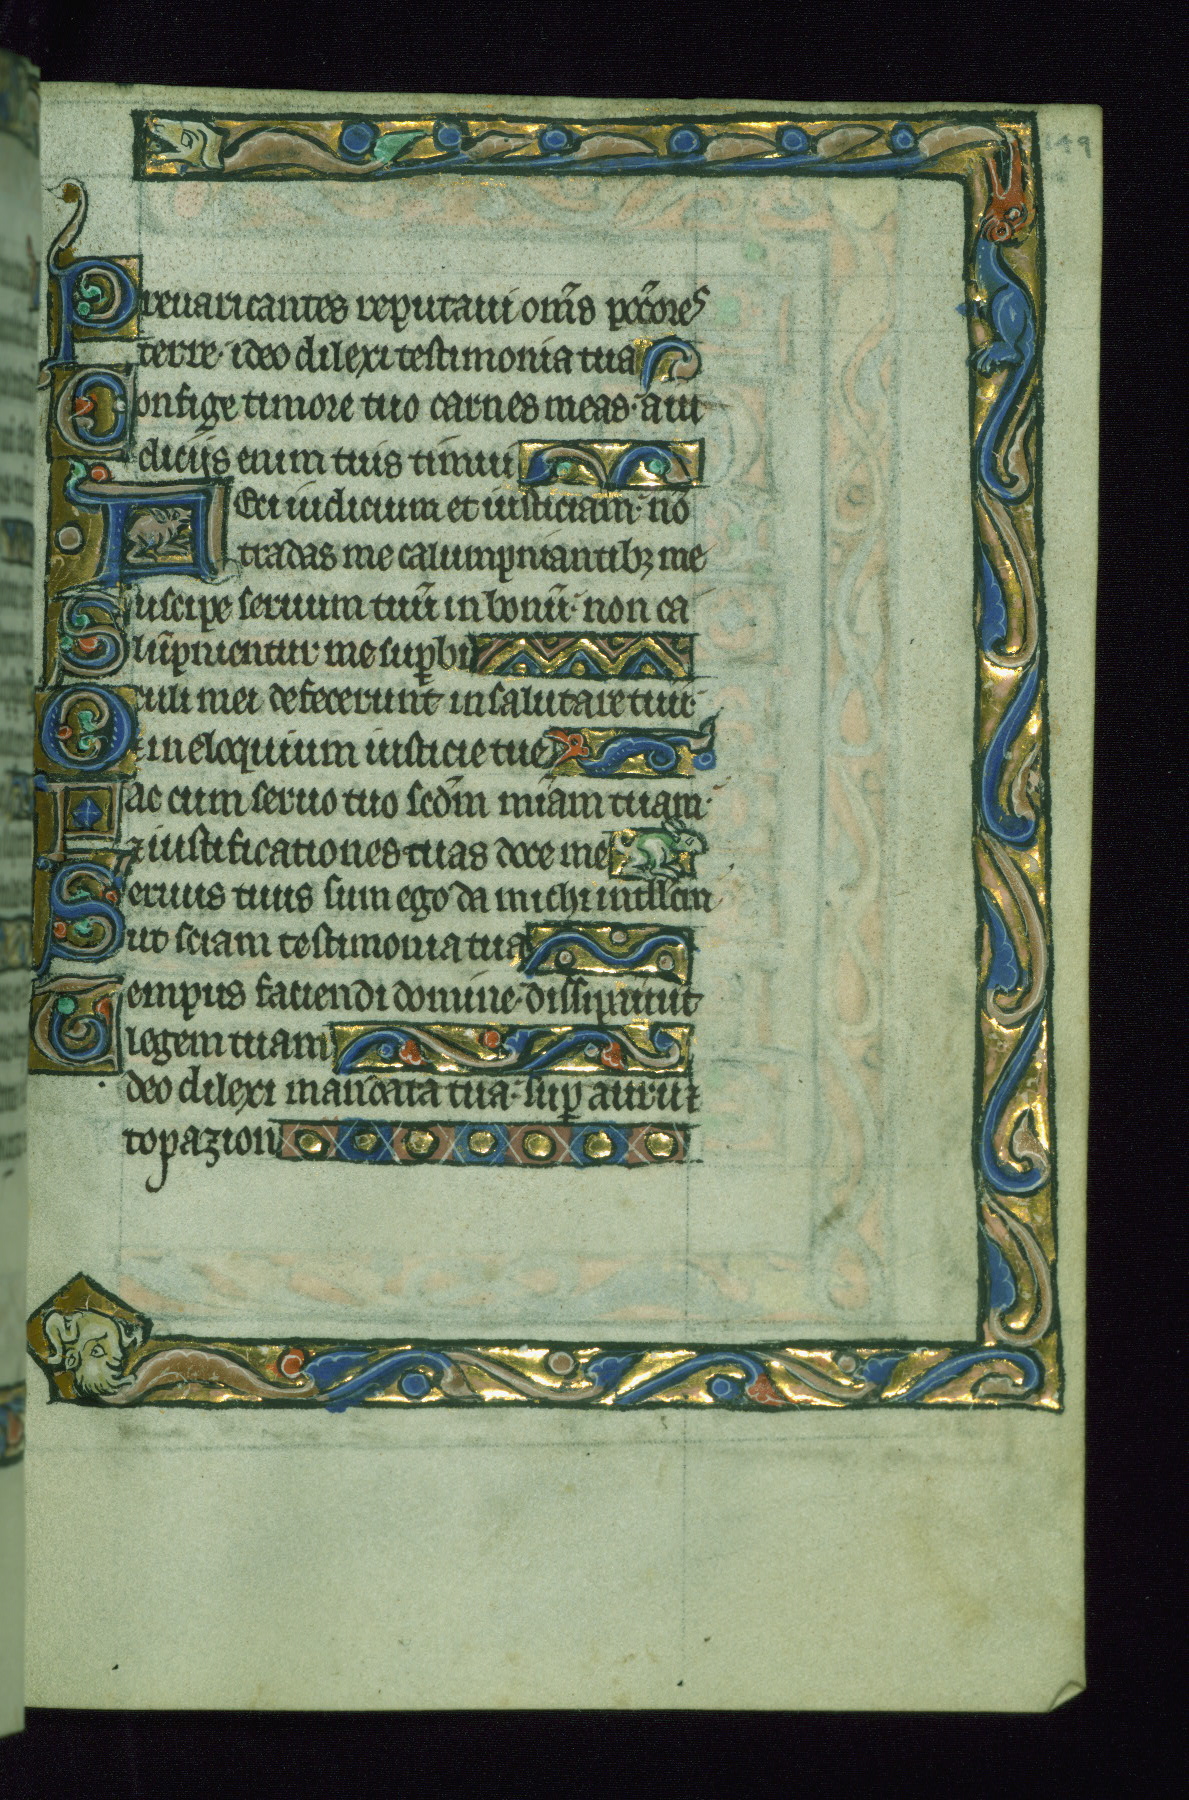 149
Prevaricantes reputavi om̄s pctōres
terre· ideo dilexi testimonia tua
Confige timore tuo carnes meas· a iu
diciis enim tuis timui
Feci iudicium et iusticiam· nō
tradas me calumpniantibꝫ me
Suscipe servum tuū in bonū· non ca
lūpnientur me suꝑbi
Oculi mei defecerunt in salutare tuū·
⁊ in eloquium iusticie tue
Fac cum servo tuo scd̄m mīam tuam·
⁊ iustificationes tuas doce me
Servus tuus sum ego da michi intllcm̄
ut sciam testimonia tua
Tempus faciendi domine· dissipaverūt
legem tuam
deo dilexi mandata tua· suꝑ aurū ⁊
topazion